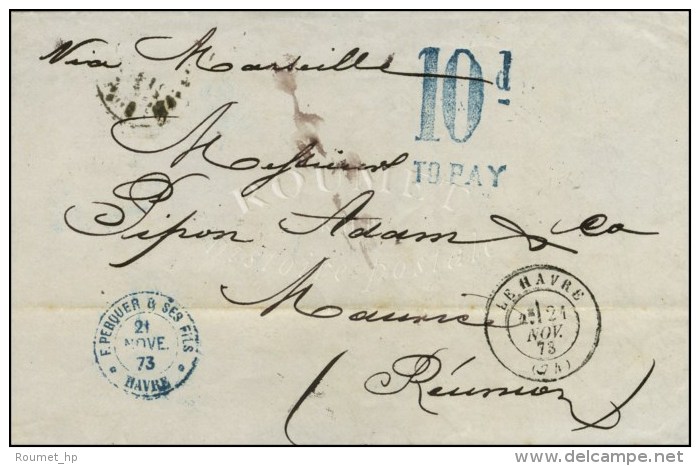 Via Marseille
10d
TO PAY
Messieurs
Pipon Adam & Co
Maurice
(Réunion)
LE HAVRE
21
NOV.
73
(74)
E. PERQUER & SES FILS
21
NOVE.
73
HAVRE
ROUMET
Roumet_hp
delcampe.net